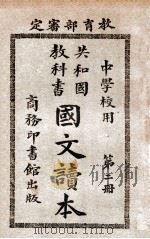 教育部審定
中學校用
共和國
教科書
國文讀本
商務印書館出版